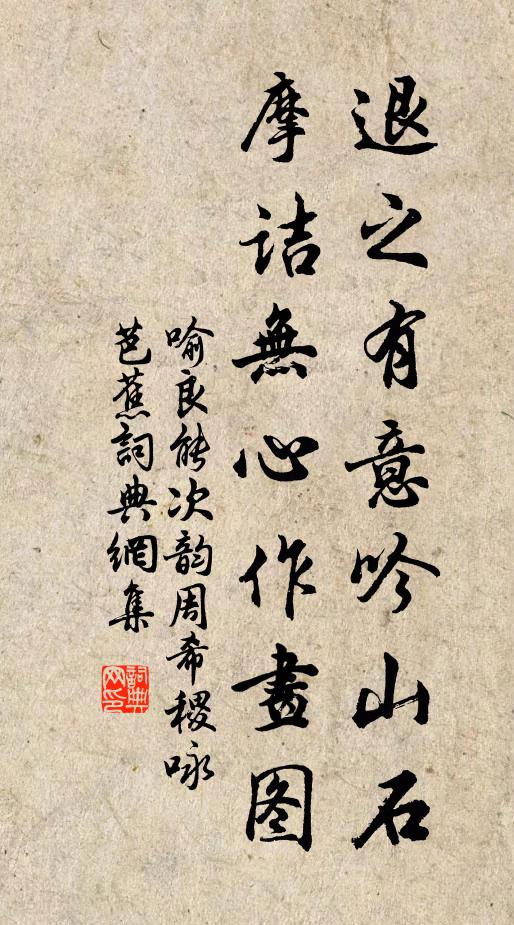 退之有意吟山石
摩诘無心作畫图
喻良能次韵周希稷咏
芭蕉詞典網集
詞典网印